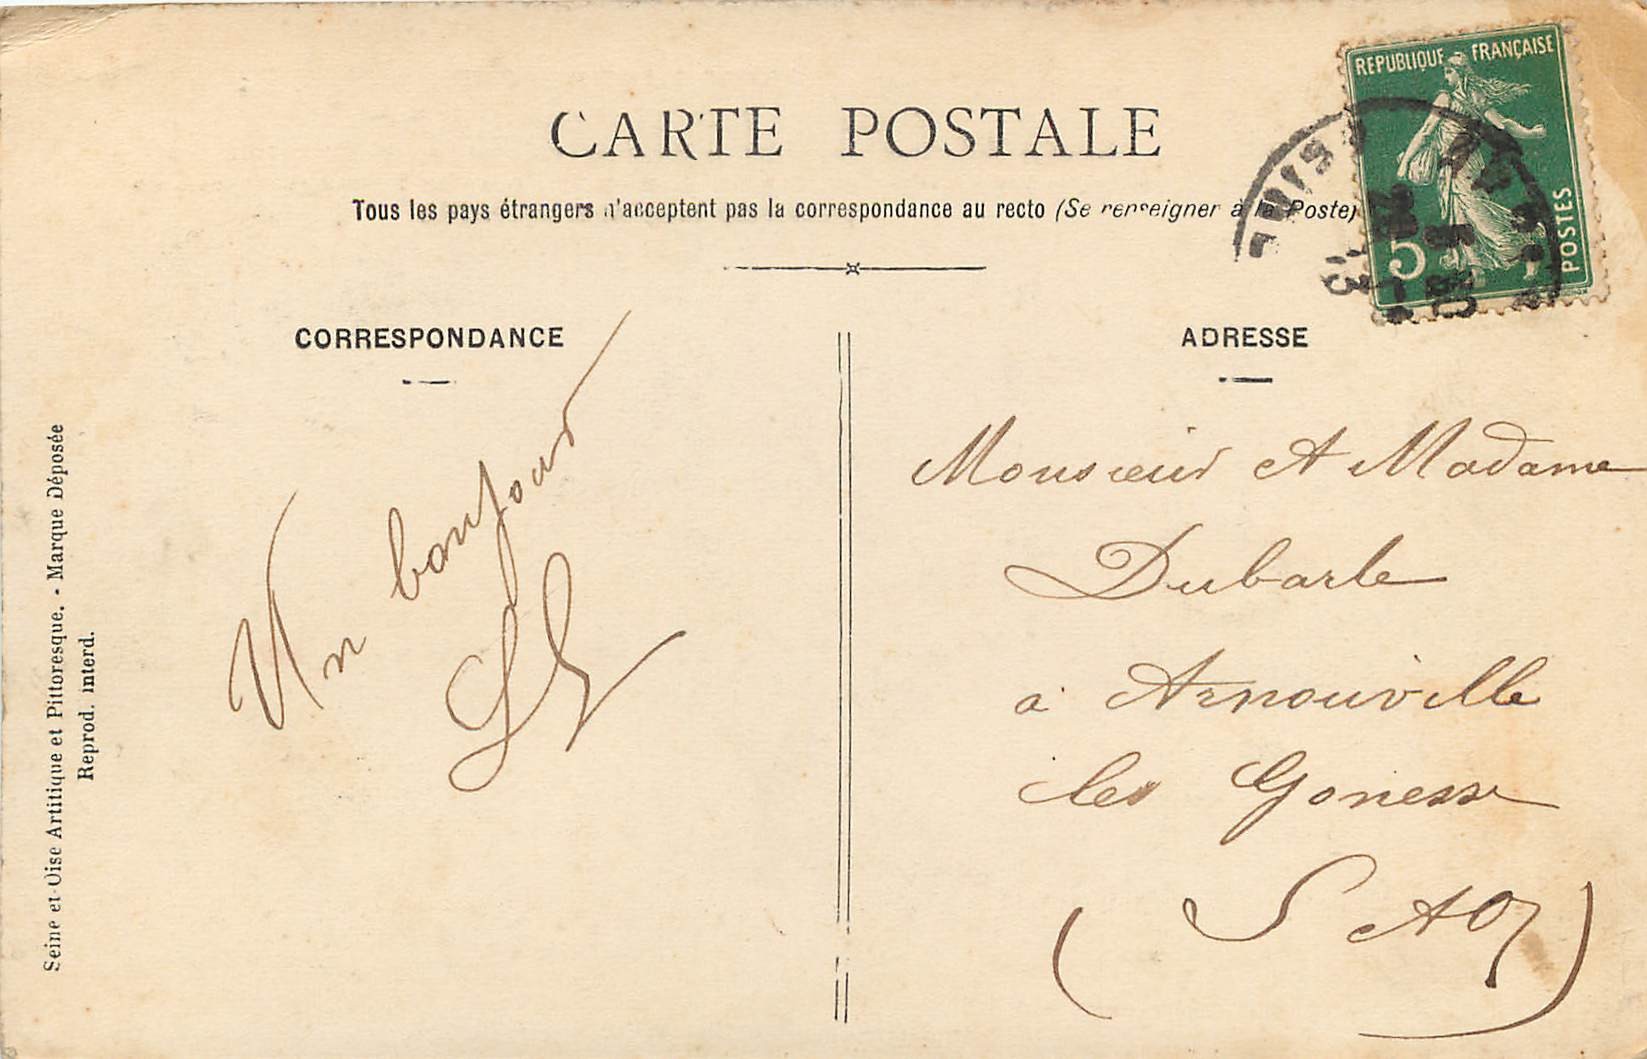 CARTE POSTALE
Tous les pays étrangers n'acceptent pas la correspondance au recto (Se renseigner à la Poste)
REPUBLIQUE FRANÇAISE
5
POSTES
CORRESPONDANCE
Un bonjour
ADRESSE
Monsieur et Madame
Dubarle
à Arnouville
les Gonesse
(S et O)
Seine et-Oise Artitique et Pittoresque. - Marque Déposée
Reprod. interd.